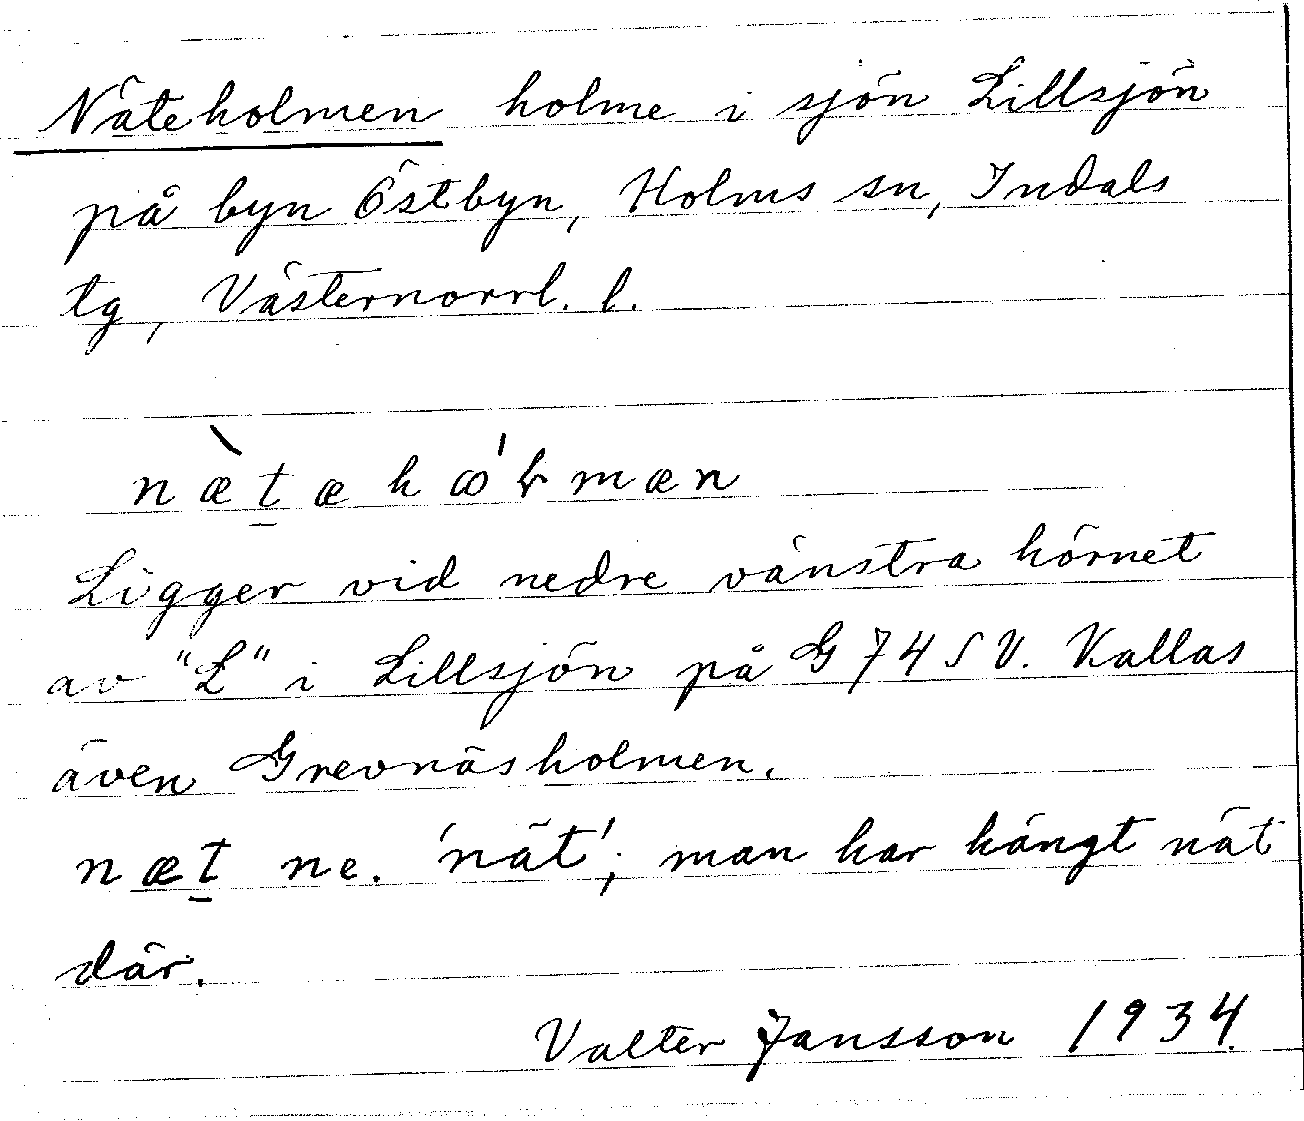 Näteholmen holme i sjön Lillsjön
på byn Östbyn, Holms sn, Indals
tg, Västernorrl. l.
næ̀t̠æhꝏ́ɽmæn
Ligger vid nedre vänstra hörnet
av "L" i Lillsjön på G 74 SV. Kallas
även Grevnäsholmen.
næt̠ ne. 'nät'; man har hängt nät
där.
Valter Jansson 1934.